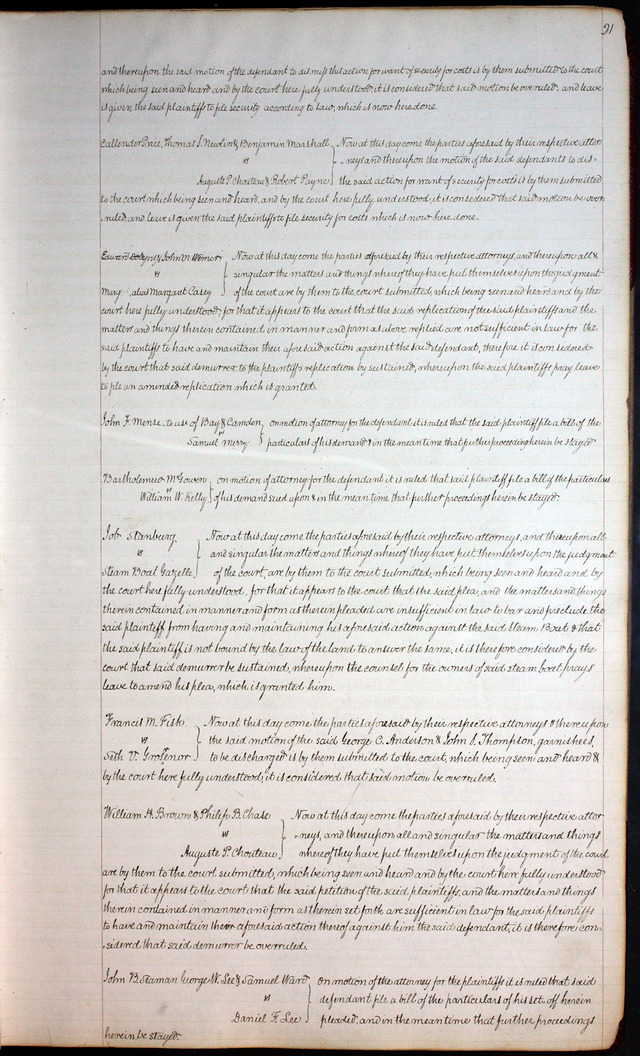 91
and thereupon the said motion of the defendant to dismiss this action for want of security for costs is by them submitted to the court
which being seen and heard and by the court here fully understood, it is considered that said motion be overruled, and leave
is given the said plaintiffs to file security according to law, which is now here done.
Callender Price, Thomas J. Newlin & Benjamin Marshall } Now at this day come the parties aforesaid by their respective attor-
vs } -neys and thereupon the motion of the said defendants to dis-
Auguste P. Chouteau & Robert Payne } the said action for want of security for costs is by them submitted
to the court which being seen and heard, and by the court here fully understood, it is considered that said motion be over
-ruled, and leave is given the said plaintiffs to file security for costs which is now here done.
Edward & John W. } Now at this day come the parties aforesaid by their respective attorneys, and thereupon all &
vs } singular the matters and things whereof they have put themselves upon the judgment
Mary alias Margaret Casey } of the court are by them to the court submitted, which being seen and heard and by the
court here fully understood, for that it appears to the court that the said replication of the said plaintiffs and the
matter and things therein contained in manner and form as above replied are not sufficient in law for the
said plaintiffs to have and maintain their aforesaid action against the said defendant, therefore it is considered
by the court that said demurrer to the plaintiffs replication by sustained, whereupon the said plaintiffs pray leave
to file an amended replication which is granted.
John F. Mense to use of Bay & Camden } on motion of attorney for the defendant it is ruled that the said plaintiff file a bill of the
vs Samuel Merry } particulars of his demand & in the mean time that further proceeding herein be stayed
Bartholemew McGowen } on motion of attorney for the defendant it is ruled that said plaintiff file a bill of the particulars
vs William W. Kelly } of his demand sued upon & in the mean time that further proceedings herein be stayed.
Job Stanburg } Now at this day come the parties aforesaid by their respective attorneys, and thereupon all
vs } and singular the matters and things whereof they have put themselves upon the judgment
Steam Boat Gazelle } of the court, are by them to the court submitted, which being seen and heard and by
the court here fully understood, for that it appears to the court that the said plea, and the matters and things
therein contained in manner and form as therein pleaded are insufficient in law to bar and preclude the
said plaintiff from having and maintaining his aforesaid action against the said Steam Boat & that
the said plaintiff is not bound by the law of the land to answer the same, it is therefore considered by the
court that said demurrer be sustained, whereupon the counsel for the owners of said steam boat prays
leave to amend his plea, which is granted him.
Francis M. Fish } Now at this day come the parties aforesaid by their respective attorneys & thereupon
vs } the said motion of the said George C. Anderson & John J. Thompson, garnishees,
Seth V. Grosvenor } to be discharged is by them submitted to the court, which being seen and heard &
by the court here fully understood, it is considered that said motion be overruled.
William H. Brown & Philip B. Chase } Now at this day come the parties aforesaid by their respective attor
vs } -neys, and thereupon all and singular the matters and things
Auguste P. Chouteau } whereof they have put themselves upon the judgment of the court
are by them to the court submitted, which being seen and heard and by the court here fully understood
for that it appears to the court that the said petition of the said plaintiffs, and the matters and things
therein contained in manner and form as therein set forth are sufficient in law for the said plaintiffs
to have and maintain their aforesaid action thereof against him the said defendant, it is therefore con-
-sidered that said demurrer be overruled.
John B. Seaman George W. Lee & Samuel Ward } On motion of the attorney for the plaintiffs it is ruled that said
vs } defendant file a bill of the particulars of his set off herein
Daniel F. Lee } pleaded, and in the mean time that further proceedings
herein be stayed.